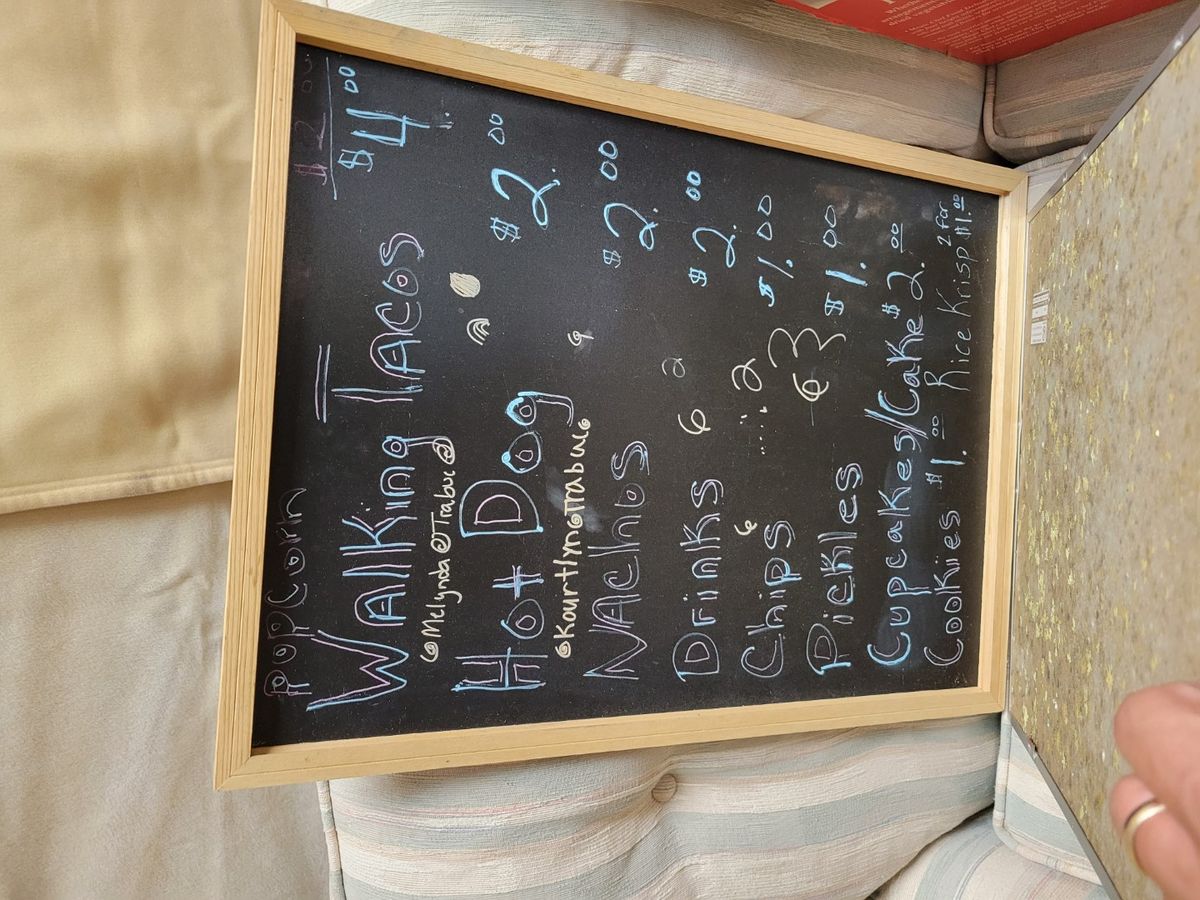 PoPCorn $2.00
WAlKing TAcos $4.00
@Melynda@Trabuc@
Hot Dog $2.00
@Kourtlyn@Trabuc@
NAchos $2.00
Drinks $2.00
Chips $1.00
Pickles $1.00
Cupcakes//Cake $2.00
Cookies $1.00 Rice Krisp 2 for $1.00